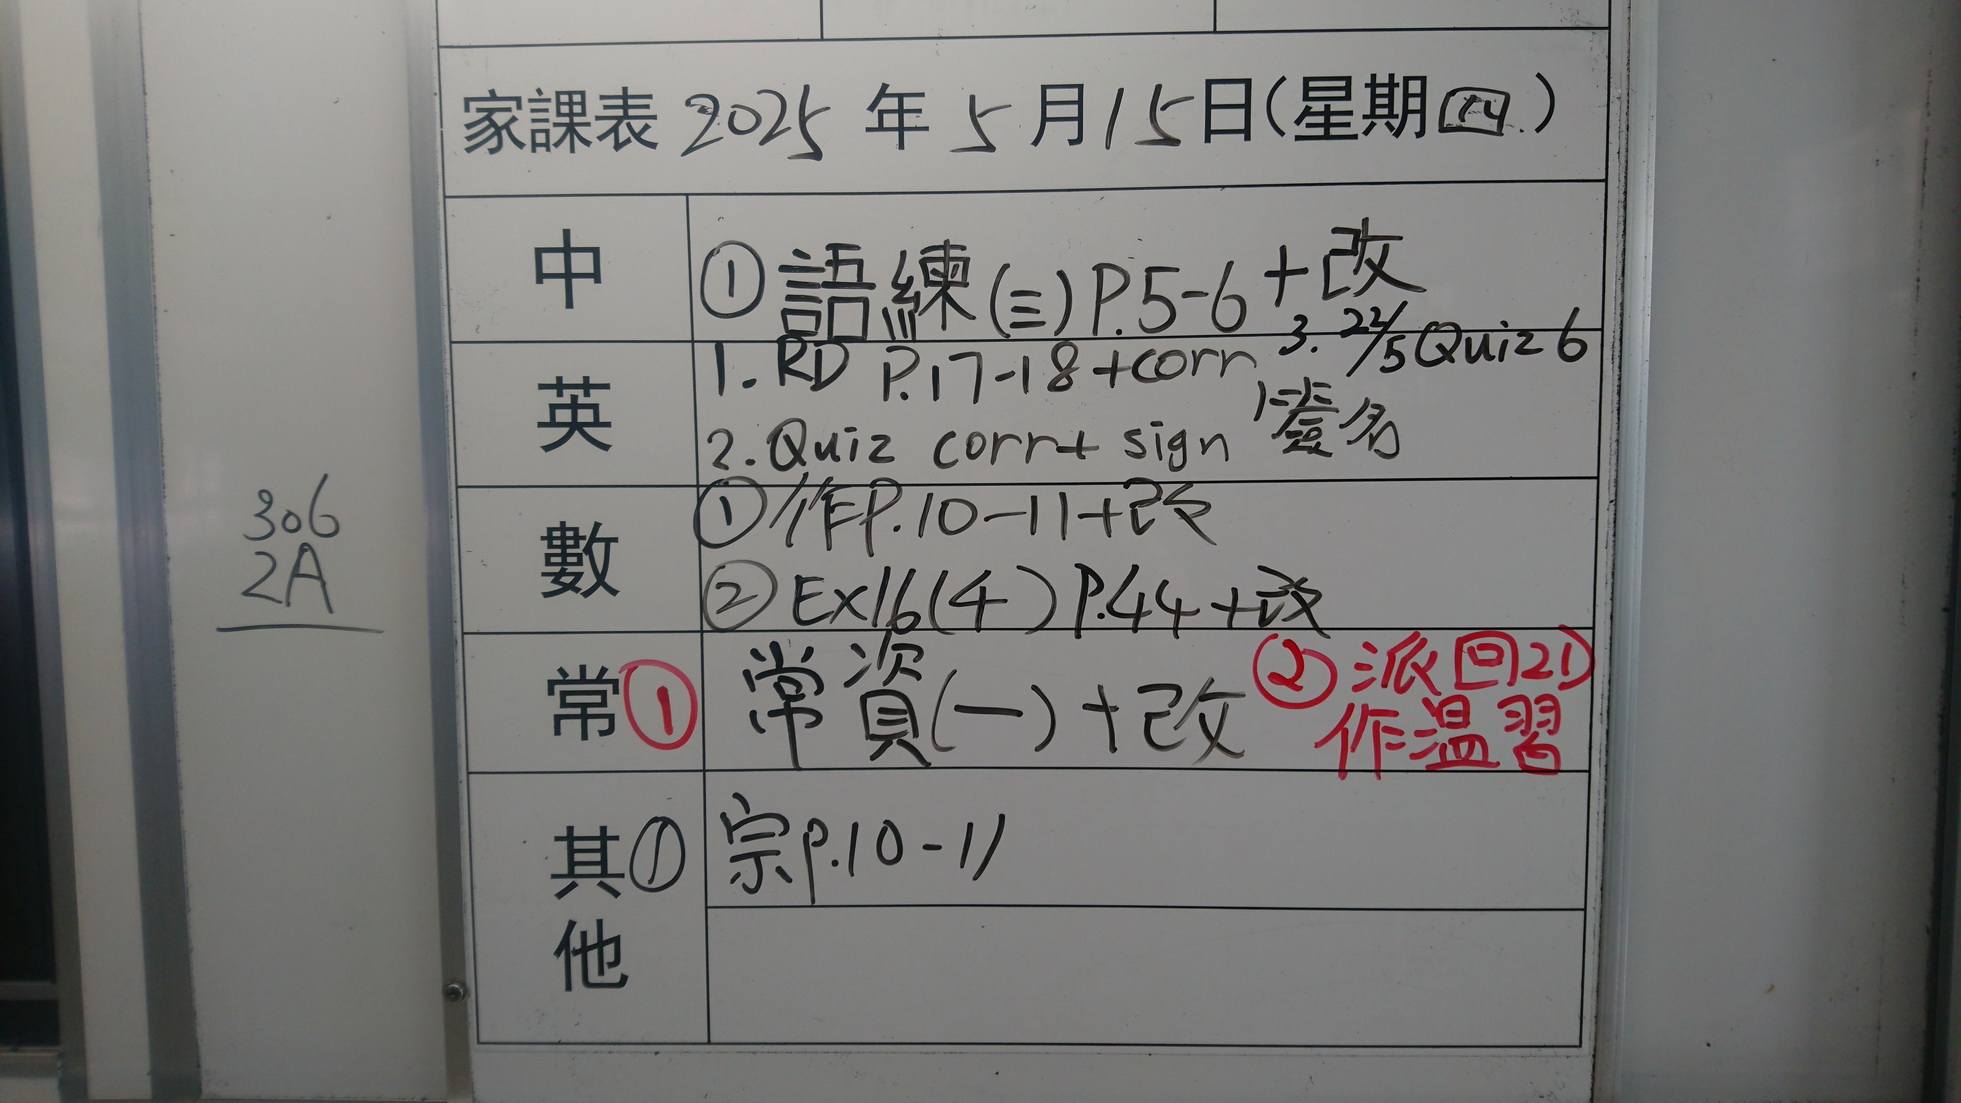 家課表 2025 年 5 月 15 日(星期四)
中 ① 語練(三) P.5-6 +改
英 1. RD P.17-18 +corr 3. 22/5 Quiz 6
2. Quiz corr + sign 簽名
數 ① 作P.10-11+改
② Ex16(4) P.44 +改
常 ① 常資(一)+改 ② 派回21)
作溫習
其他 ① 宗P.10-11
306
2A